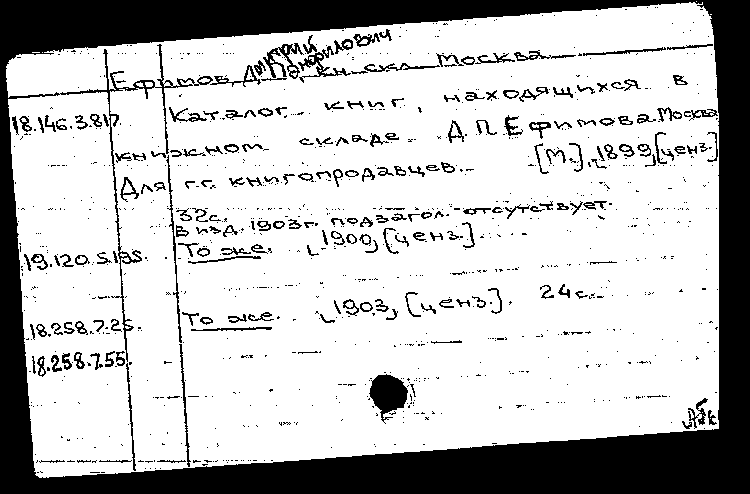 Ефимов, Дмитрий Панфилович, кн. скл. Москва
18.146.3.817 Каталог книг, находящихся в
книжном складе Д.П. Ефимова. Москва
Для г.г. книгопродавцев. [М.], 1899, [ценз.]
32с.
В изд. 1903г. подзагол. отсутствует.
19.120.5.195. То же. 1900, [ценз.]
18.258.7.25. То же. 1903, [ценз.]. 24с.
18.258.7.55.